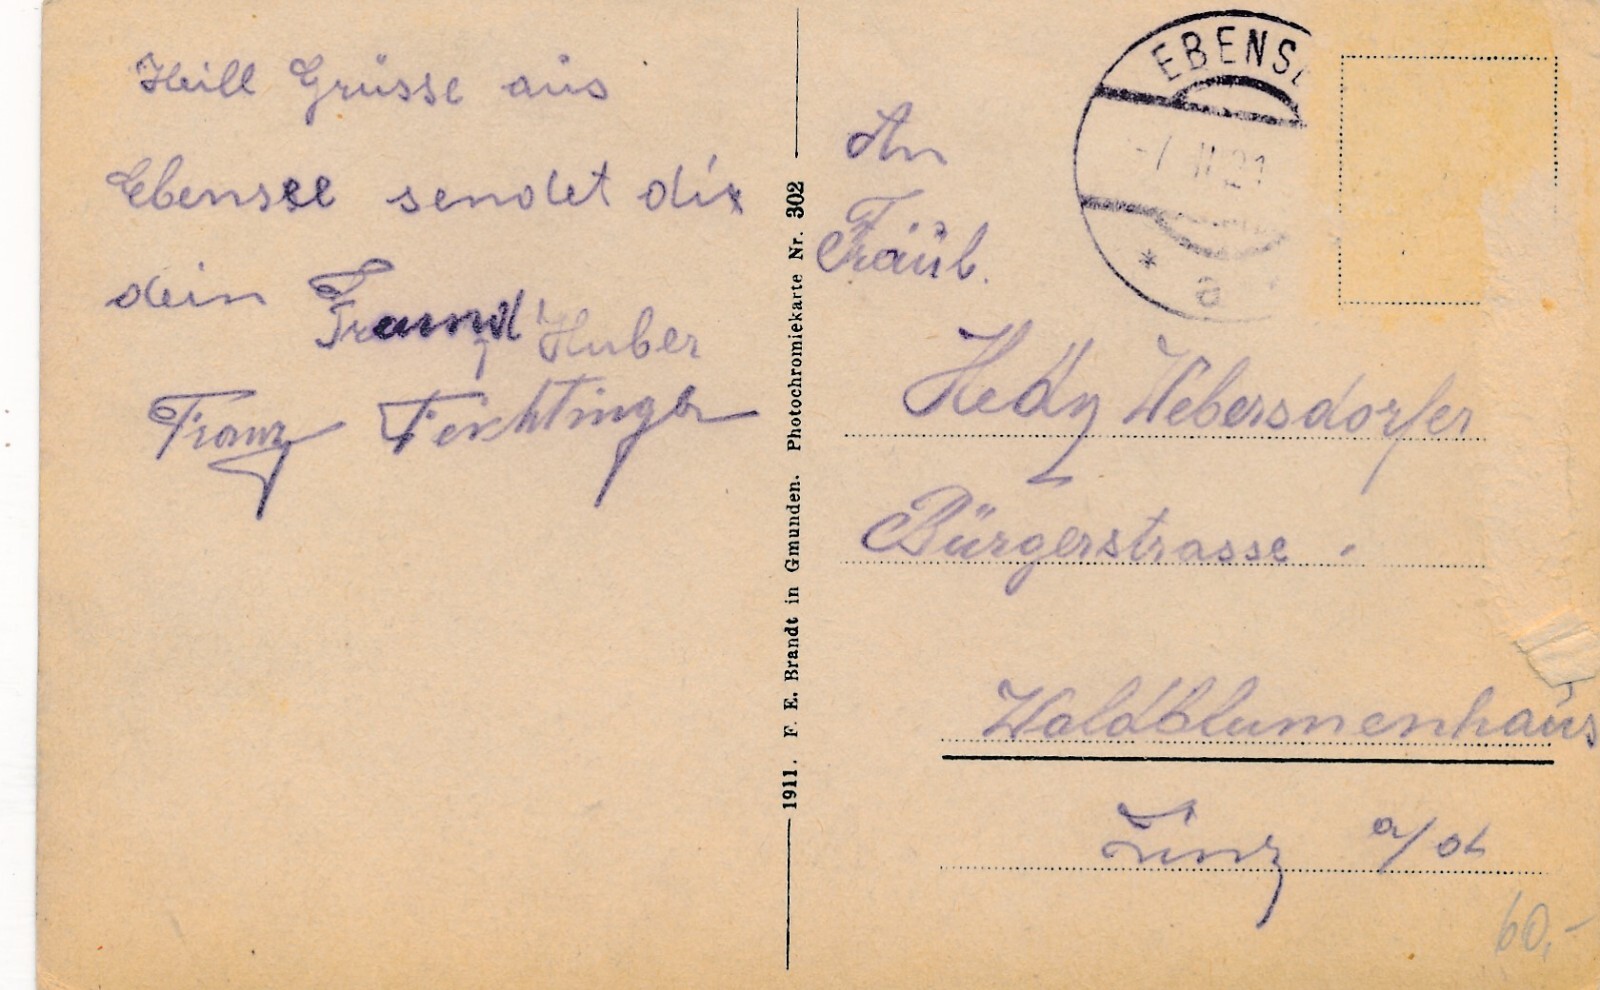 Heill Grüsse aus
Ebensee sendet dir
dein Freund
Huber
Franz Feichtinger
1911. F. E. Brandt in Gmunden. Photochromiekarte Nr. 302
EBENSE
21
* a
An
Fräul.
Hedy Webersdorfer
Bürgerstrasse .
Waldblumenhaus
Linz a/d
60,-